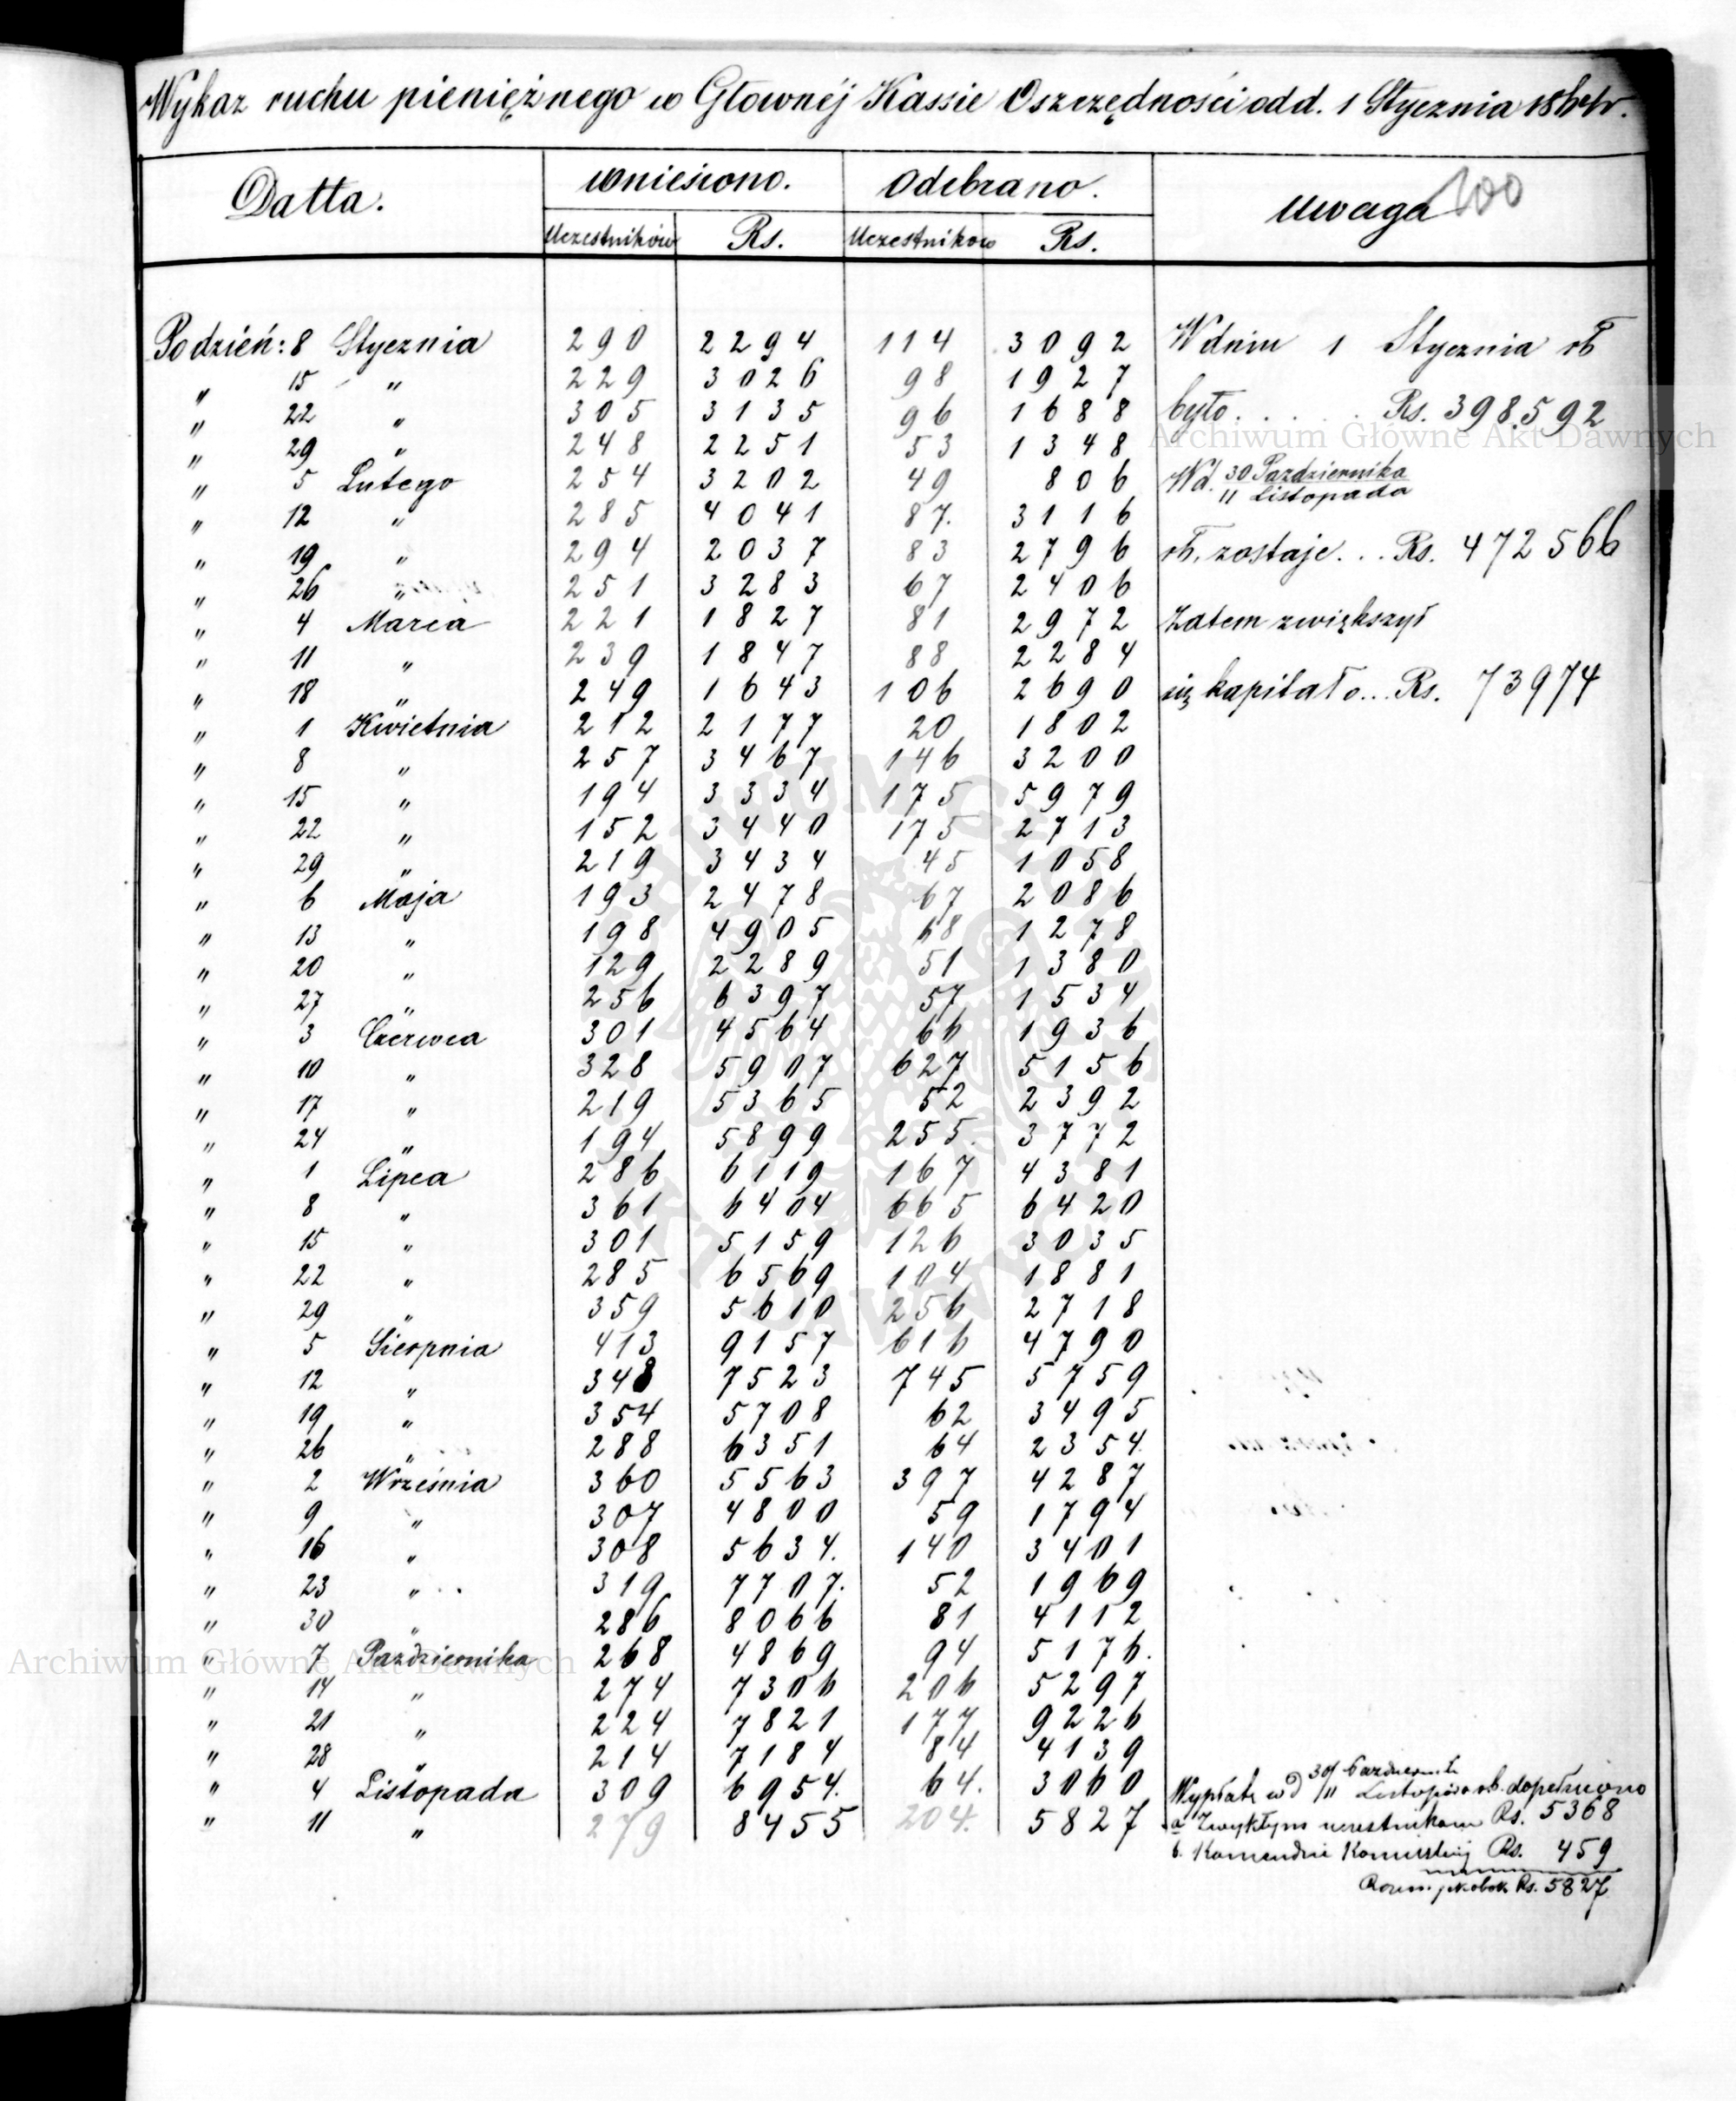 Wykaz ruchu pieniężnego w Głownéj Kassie Oszczędności od d. 1 Stycznia
100
Datta. wniesiono. Odebrano. Uwaga
Uczestników Rs. Uczestników Rs.
Po dzień: 8 Stycznia 290 2294 114 3092 W dniu 1 Stycznia rb
" 15 " 229 3026 98 1927
" 22 " 305 3135 96 1688 było. . . . . Rs. 398.592
" 29 " 248 2251 53 1348
" 5 Lutego 254 3202 49 806 W d. 30 Pazdziernika
11 Listopada
" 12 " 285 4041 87. 3116
" 19 " 294 2037 83 2796 rb. zostaje. . . Rs. 472566
" 26 " 251 3283 67 2406
" 4 Marca 221 1827 81 2972 Zatem zwiększył
" 11 " 239 1847 88 2284
" 18 " 249 1643 106 2690 się kapitał o... Rs. 73974
" 1 Kwietnia 212 2177 20 1802
" 8 " 257 3467 146 3200
" 15 " 194 3334 175 5979
" 22 " 152 3440 175 2713
" 29 " 219 3434 45 1058
" 6 Maja 193 2478 67 2086
" 13 " 198 4905 68 1278
" 20 " 129 2289 51 1380
" 27 " 256 6397 57 1534
" 3 Czerwca 301 4564 66 1936
" 10 " 328 5907 627 5156
" 17 " 219 5365 52 2392
" 24 " 194 5899 255. 3772
" 1 Lipca 286 6119 167 4381
" 8 " 361 6404 665 6420
" 15 " 301 5159 126 3035
" 22 " 285 6569 104 1881
" 29 " 359 5610 256 2718
" 5 Sierpnia 413 9157 616 4790
" 12 " 348 7523 745 5759
" 19 " 354 5708 62 3495
" 26 " 288 6351 64 2354.
" 2 Wrześnía 360 5563 397 4287
" 9 " 307 4800 59 1794
" 16 " 308 5634. 140 3401
" 23 " 319 7707. 52 1969
" 30 " 286 8066 81 4112
" 7 Pazdziernika 268 4869 94 5176.
" 14 " 274 7306 206 5297
" 21 " 224 7821 177 9226
" 28 " 214 7184 84 4139
" 4 Listopada 309 6954. 64. 3060
" 11 " 279 8455 204. 5827
Wypłatę w d 30/11 Listopada rb. dopełniono
a Zwykłym uczestnikom Rs. 5368
b. Komendzie Rs. 459
Razem jak obok Rs. 5827
Archiwum Główne Akt Dawnych
Archiwum Główne Akt Dawnych